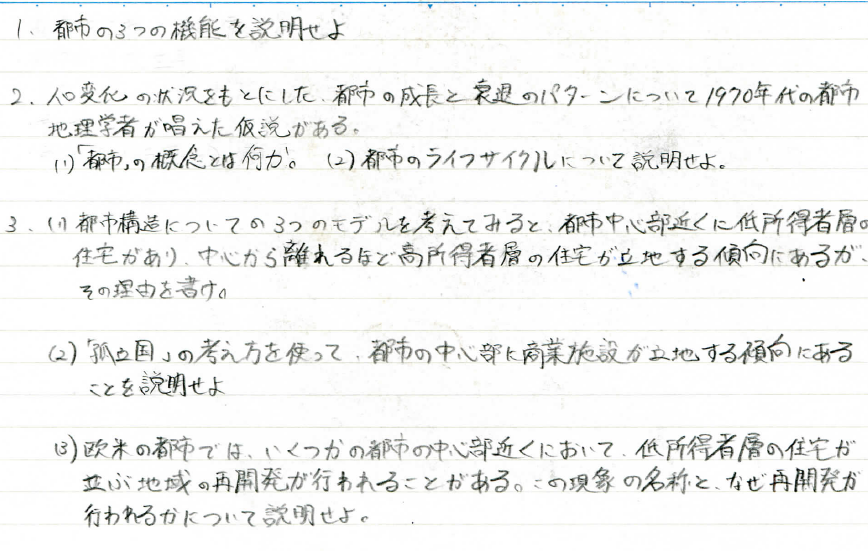 1. 都市の3つの機能を説明せよ
2. 人口変化の状況をもとにした、都市の成長と衰退のパターンについて1970年代の都市
地理学者が唱えた仮説がある。
(1)「都市」の概念とは何か。 (2)都市のライフサイクルについて説明せよ。
3. (1)都市構造についての3つのモデルを考えてみると、都市中心部近くに低所得者層の
住宅があり、中心から離れるほど高所得者層の住宅が立地する傾向にあるが、
その理由を書け。
(2)「孤立国」の考え方を使って、都市の中心部に商業施設が立地する傾向にある
ことを説明せよ
(3)欧米の都市では、いくつかの都市の中心部近くにおいて、低所得者層の住宅が
並ぶ地域の再開発が行われることがある。この現象の名称と、なぜ再開発が
行われるかについて説明せよ。